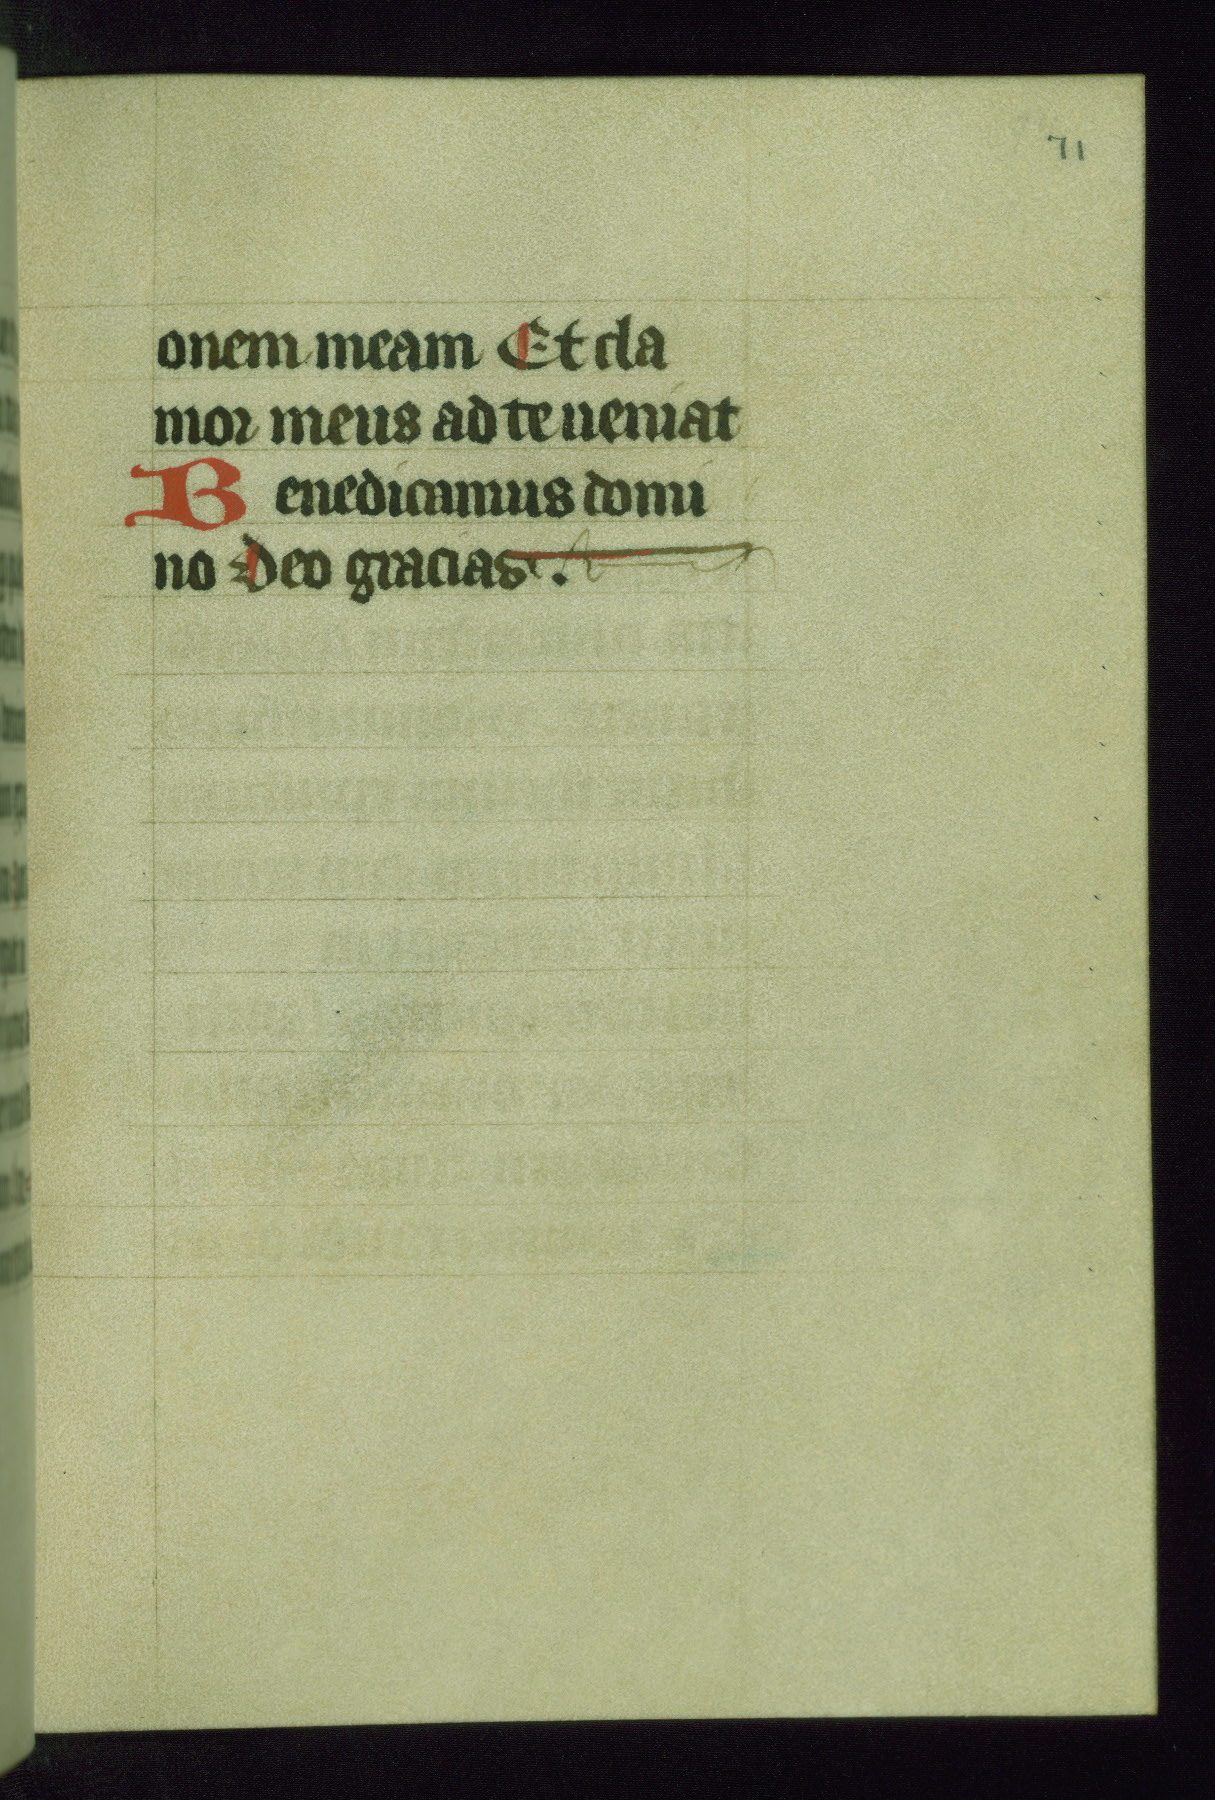 71
onem meam Et cla
mor meus ad te ueniat
Benedicamus domi
no Deo gracias .